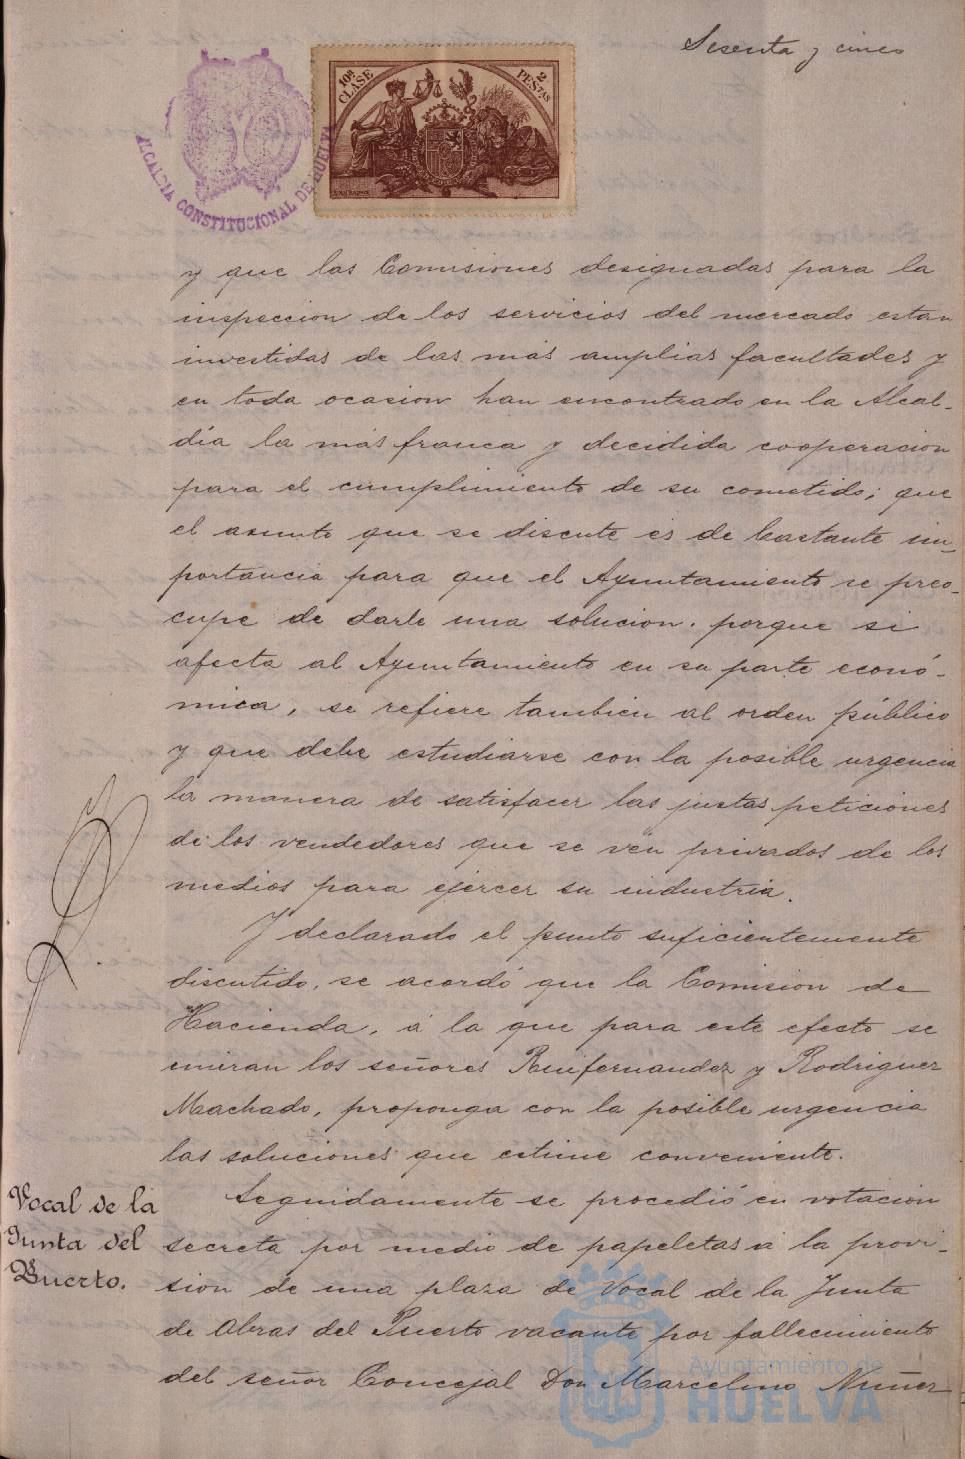 Sesenta y cinco
10ª CLASE
2 PESTAS
ALCALDIA CONSTITUCIONAL DE HUELVA
y que las Comisiones designadas para la
inspeccion de los servicios del mercado estan
investidas de las más amplias facultades y
en toda ocasion han encontrado en la Alcal-
día la más franca y decidida cooperacion
para el cumplimiento de su cometido; que
el asunto que se discute es de bastante im-
portancia para que el Ayuntamiento se preo-
cupe de darle una solucion. porque si
afecta al Ayuntamiento en su parte econó-
mica, se refiere tambien al orden público
y que debe estudiarse con la posible urgencia
la manera de satisfacer las justas peticiones
de los vendedores que se ven privados de los
medios para ejercer su industria.
Y declarado el punto suficientemente
discutido, se acordó que la Comision de
Hacienda, á la que para este efecto se
uniran los señores Ruifernandez y Rodriguez
Machado, proponga con la posible urgencia
las soluciones que estime conveniente.
Vocal de la
Junta del
Puerto.
Seguidamente se procedió en votacion
secreta por medio de papeletas á la provi-
sion de una plaza de Vocal de la Junta
de Obras del Puerto vacante por fallecimiento
del señor Concejal Don Marcelino Nuñez
Ayuntamiento de
HUELVA